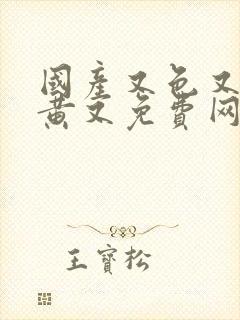 國產又色又
黄文免費网
王寶松